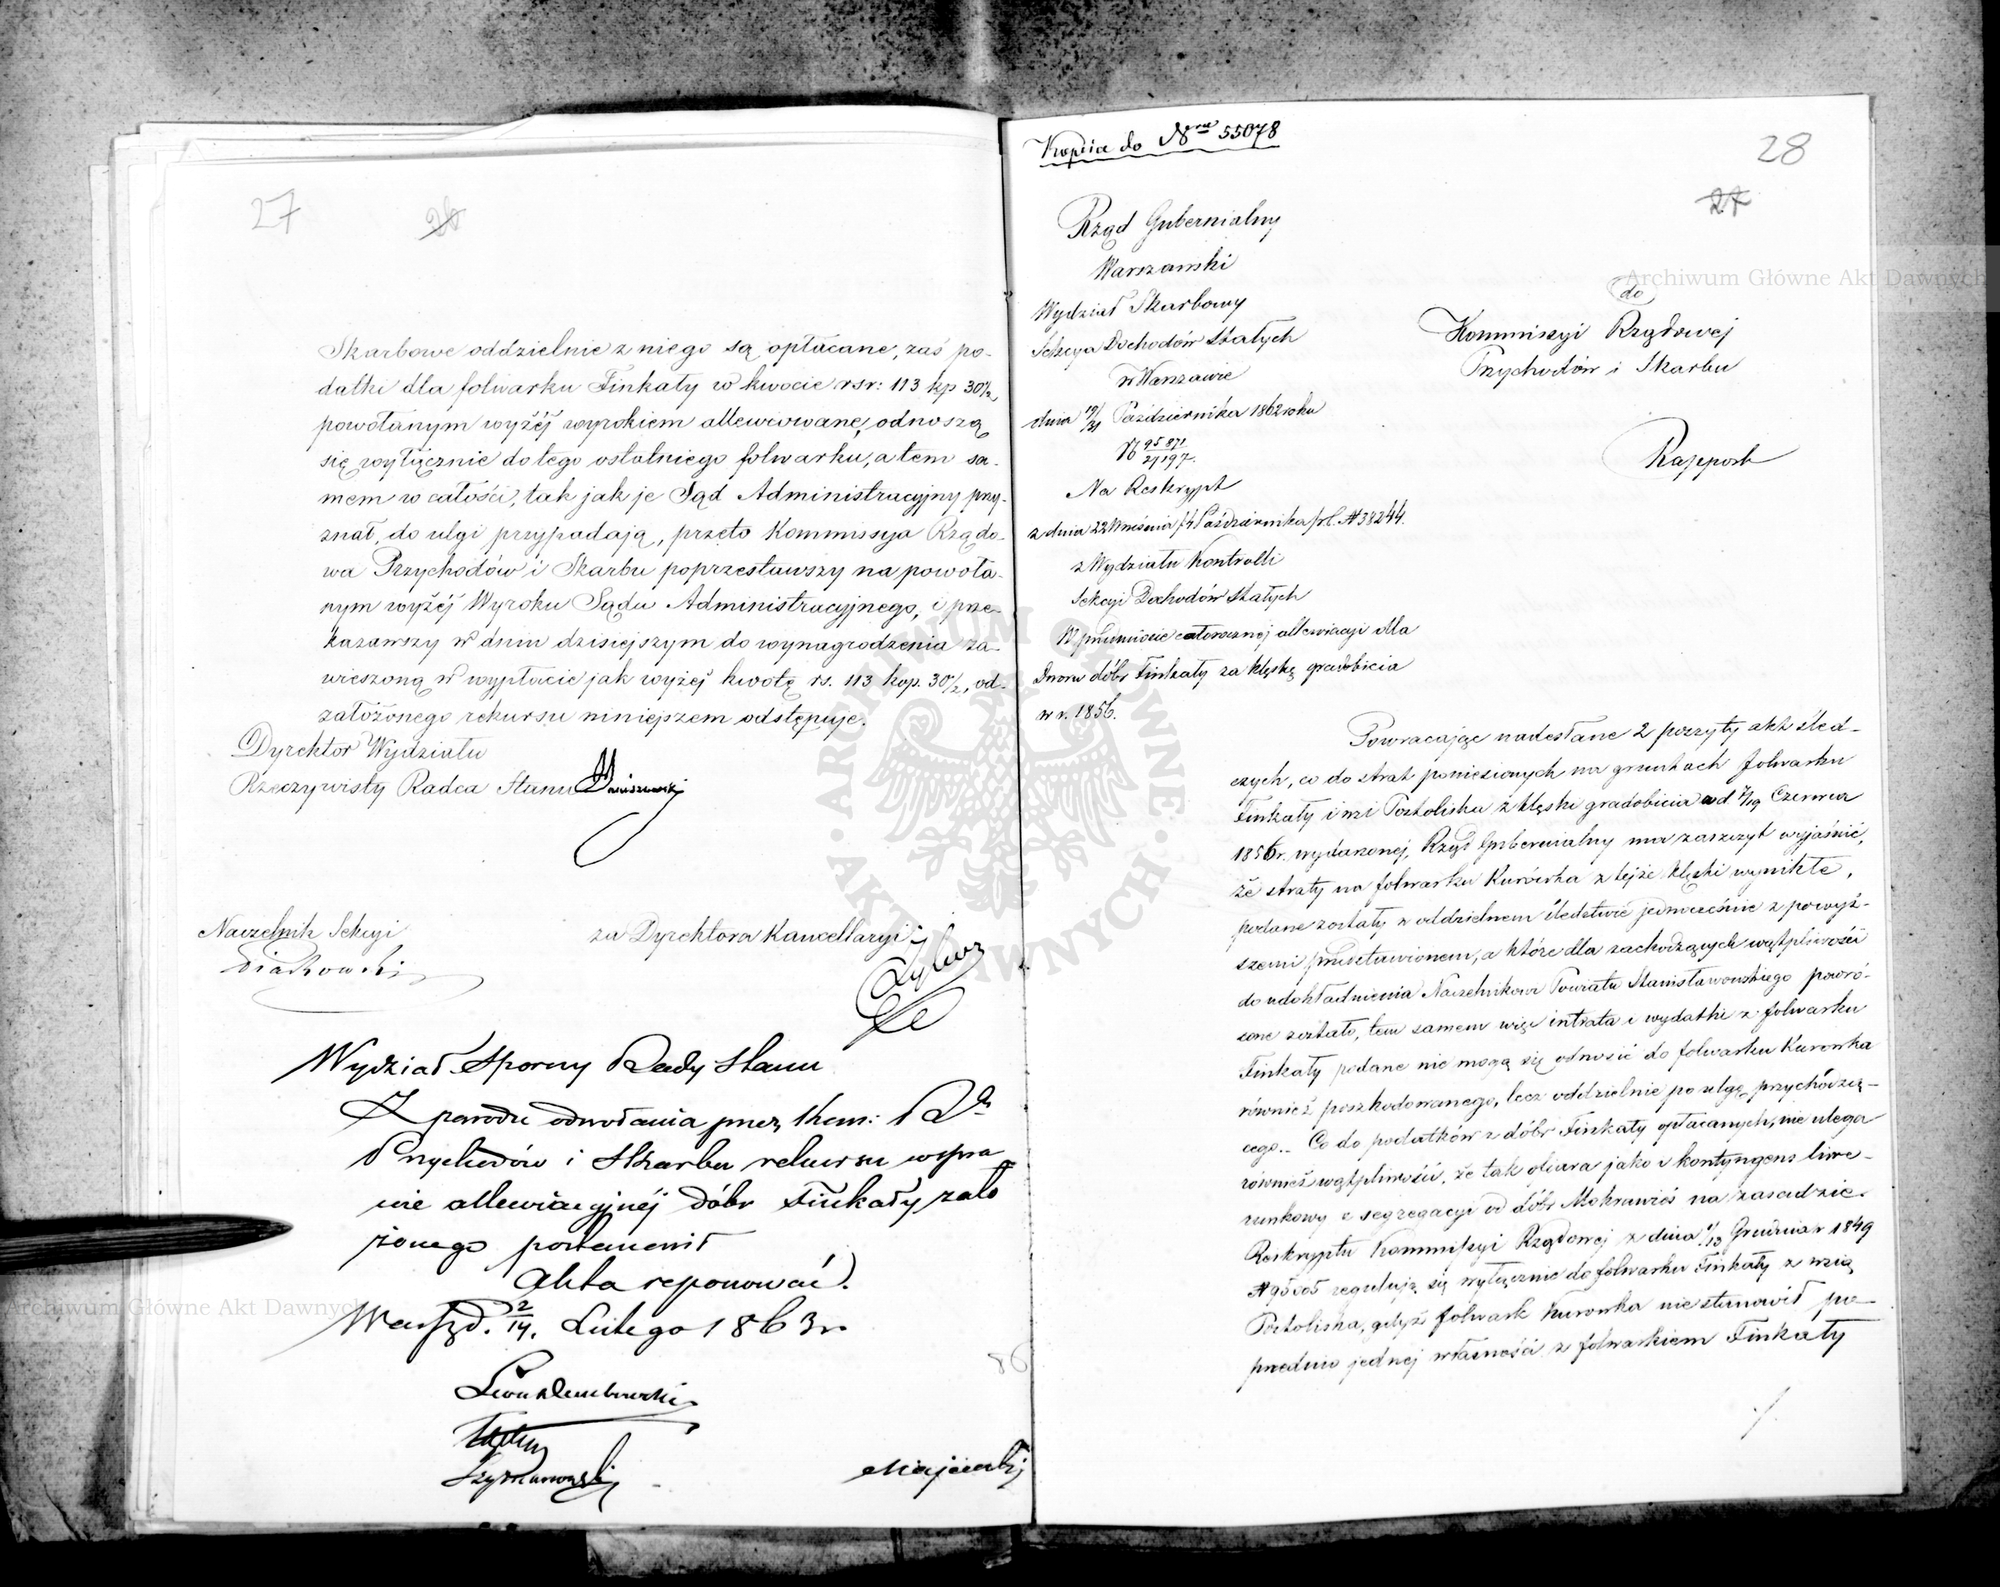 27
26
Skarbowe oddzielnie z niego są opłacane, zaś po-
datki dla folwarku Finkały w kwocie rsr: 113 kp 30½
powołanym wyżej wyrokiem allewiowane, odnoszą
się wyłącznie do tego ostatniego folwarku, a tem sa-
mem w całości, tak jak je Sąd Administracyjny przy-
znał, do ulgi przypadają, przeto Kommissya Rządo-
wa Przychodów i Skarbu poprzestawszy na powoła-
nym wyżej Wyroku Sądu Administracyjnego, i prze-
kazawszy w dniu dzisiejszym do wynagrodzenia za-
wieszoną w wypłacie jak wyżej kwotę rs. 113 kop. 30½, od-
założonego rekursu niniejszem odstępuje.
Dyrektor Wydziału
Rzeczywisty Radca Stanu
Naczelnik Sekcyi
za Dyrektora Kancellaryi
Wydział Sporny Rady Stanu
Z powodu odwołania przez Kom: Rz
Przychodów i Skarbu rekursu w spra
wie allewiacyjnéj dóbr Finkały zało
żonego postanowił
Akta reponować.
Warsz d. 2/14. Lutego 1863 r.
Szymanowski
Kopia do Nru 55078
28
27
Rząd Gubernialny
Warszawski
Wydział Skarbowy
Sekcya Dochodów Stałych
w Warszawie
dnia 19/31 Października 1862 roku
N 95871/21197.
Na Reskrypt
z dnia 22 Września /4 Października r. b. N 38244.
z Wydziału Kontrolli
Sekcyi Dochodów Stałych
W przedmiocie całorocznej allewiacyi dla
Dworu dóbr Finkały za klęskę gradobicia
w r. 1856.
do
Kommissyi Rządowej
Przychodów i Skarbu
Rapport
Powracając nadesłane 2 poszyty akt śled-
czych, co do strat poniesionych na gruntach folwarku
Finkały i wsi Postoliska z klęski gradobicia w d 7/19 Czerwca
1856 r. wydarzonej, Rząd Gubernialny ma zaszczyt wyjaśnić,
że straty na folwarku Kurówka z tejże klęski wynikłe,
podane zostały w oddzielnem śledztwie jednocześnie z powyż-
szemi przedstawionem, a które dla zachodzących wątpliwości
do udokładnienia Naczelnikowi Powiatu Stanisławowskiego powró-
cone zostało, tem samem więc intrata i wydatki z folwarku
Finkały podane nie mogą się odnosić do folwarku Kurówka
również poszkodowanego, lecz oddzielnie po ulgę przychodzą-
cego. Co do podatków z dóbr Finkały opłacanych, nie ulega
również wątpliwości, że tak ofiara jako i kontyngens liwe-
runkowy z segregacyi od dóbr Mokrawieś na zasadzie
Reskryptu Kommissyi Rządowej z dnia 1/13 Grudnia r 1849
regulują się wyłącznie do folwarku Finkały z wsią
Postoliska, gdyż folwark Kurówka nie stanowił po-
przednio jednej własności z folwarkiem Finkały
Archiwum Główne Akt Dawnych
Archiwum Główne Akt Dawnych
ARCHIWUM GŁÓWNE AKT DAWNYCH